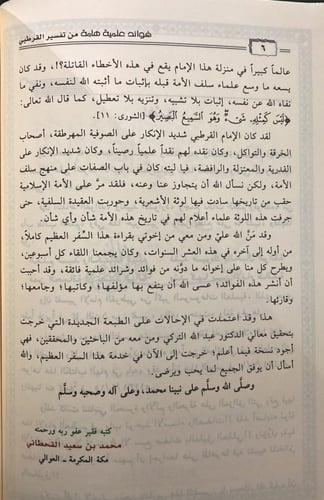 فوائد علمية هامة من تفسير القرطبي
٦
عالماً كبيراً في منزلة هذا الإمام يقع في هذه الأخطاء القاتلة؟!، وقد كان
يسعه ما وسع علماء سلف الأمة قبله بإثبات ما أثبته الله لنفسه، ونفي ما
نفاه الله عن نفسه، إثبات بلا تشبيه، وتنزيه بلا تعطيل، كما قال الله تعالى:
﴿لَيْسَ كَمِثْلِهِ شَيْءٌ وَهُوَ السَّمِيعُ الْبَصِيرُ﴾ [الشورى: ١١].
لقد كان الإمام القرطبي شديد الإنكار على الصوفية المهرطقة، أصحاب
الخرقة والتواكل، وكان نقده لهم نقداً علمياً رصيناً، وكان شديد الإنكار على
القدرية والمعتزلة والرافضة، فيا ليته كان في باب الصفات على منهج سلف
الأمة، ولكن نسأل الله أن يتجاوز عنا وعنه، فلقد مرَّ على الأمة الإسلامية
حقب من تاريخها سادت فيها لوثة الأشعرية، وحوربت العقيدة السلفية، حتى
جرفت هذه اللوثة علماء أعلام لهم في تاريخ هذه الأمة شأن وأي شأن.
وقد منَّ الله عليَّ ومن معي من إخوتي بقراءة هذا السِّفر العظيم كاملاً،
من أوله إلى آخره في هذه العشر السنوات، وكان يجمعنا اللقاء كل أسبوعين،
ويطرح كل منا على إخوانه ما دوّنه من فوائد وشرائد علمية فائقة، وقد أحببت
أن أنشر هذه الفوائد؛ عسى الله أن ينفع بها مؤلفها؛ وكاتبها؛ وجامعها؛
وقارئها.
هذا وقد اعتمدت في الإحالات على الطبعة الجديدة التي خرجت
بتحقيق معالي الدكتور عبد الله التركي ومن معه من الباحثين والمحققين، فهي
أجود نسخة فيما أعلم؛ خرجت إلى الآن في خدمة هذا السفر العظيم، والله
أسأل أن يوفق الجميع لما يحب ويرضى.
وصلَّى الله وسلَّم على نبينا محمد، وعلى آله وصحبه وسلَّم
كتبه فقير عفو ربه ورحمته
محمد بن سعيد القحطاني
مكة المكرمة - العوالي